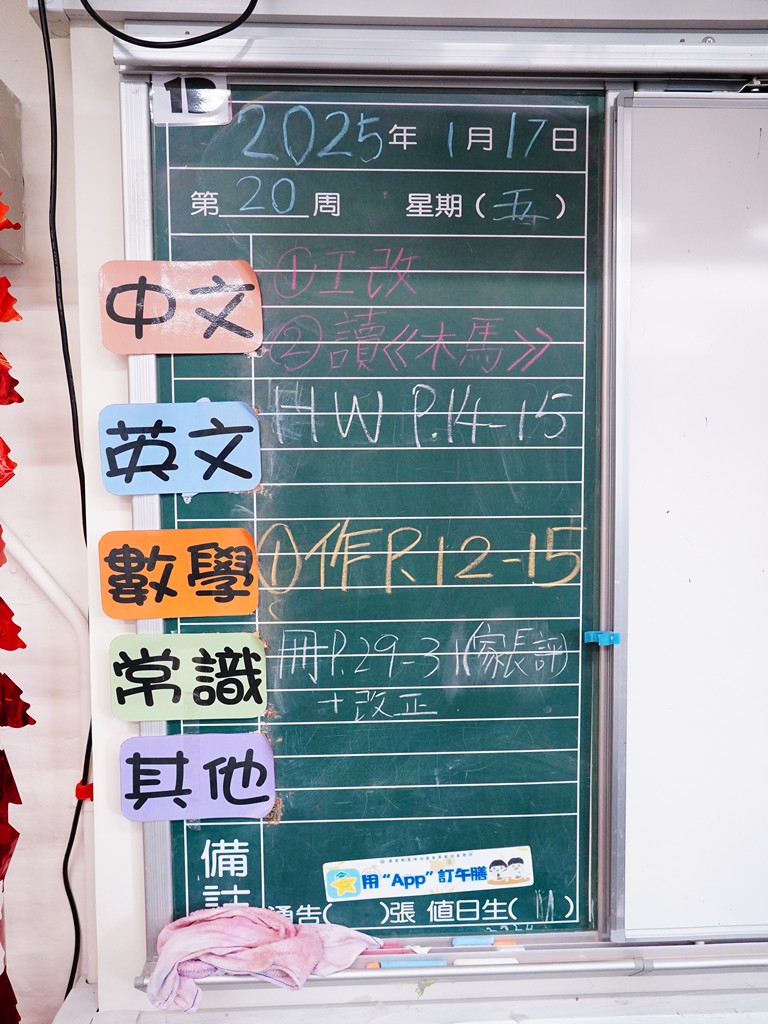 1D
2025年 1月17日
第 20 周 星期（五）
中文
①工改
②讀《木馬》
英文
HW P.14-15
數學
①作P.12-15
常識
冊P.29-31(家長評)
+改正
其他
備註
用“App”訂午膳
通告( )張 值日生( )